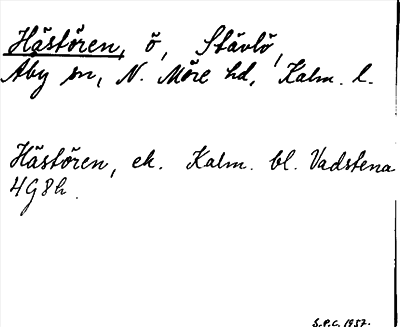 Hästören, ö, Stävlö,
Åby sn, N. Möre hd, Kalm. l.
Hästören, ek. Kalm. bl. Vadstena
4G8h.
S.P.C. 1957.